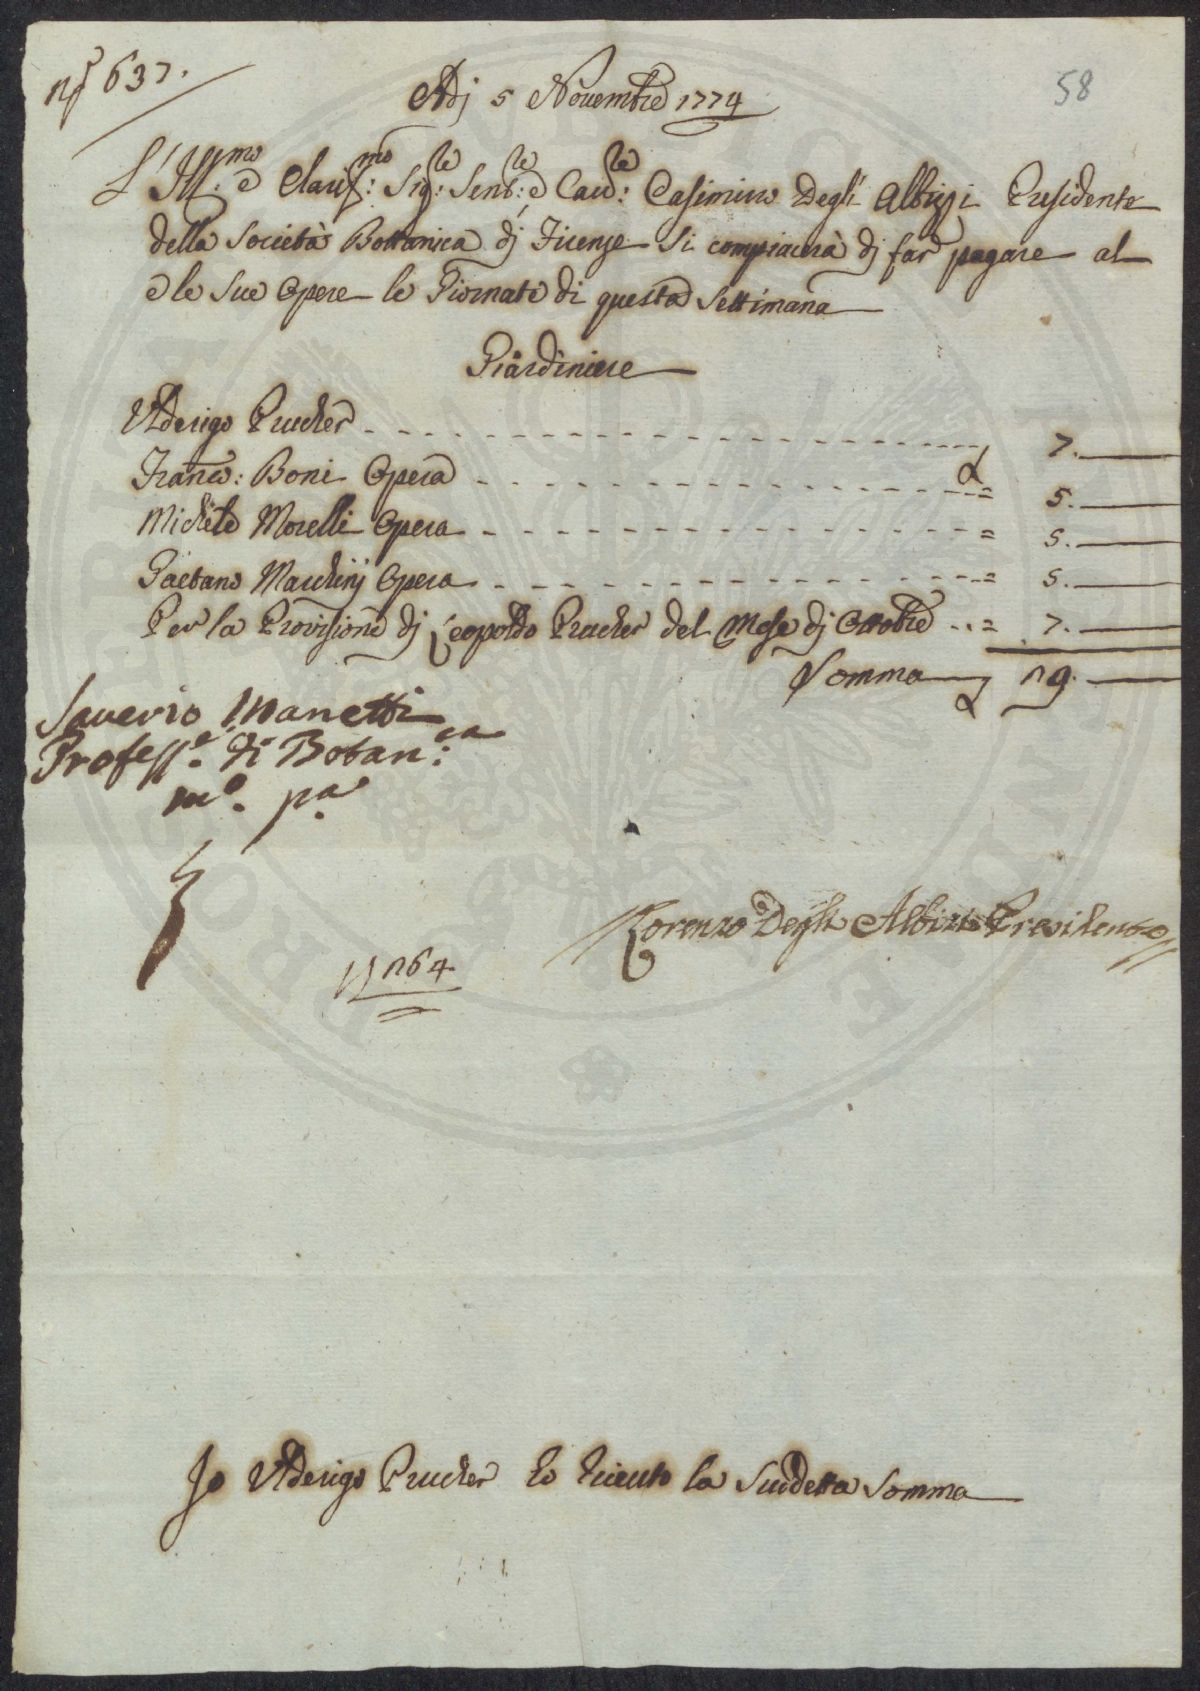 nº 637.
58
Adj 5 Novembre 1774
L'Ill.mo e Clariss:mo Sig:re Senb:re e Cav:re Casimirro Degli Albizzi Presidente
della Società Bottanica dj Firenze Si compiacerà dj far pagare al
e le Sue Opere le Giornate di questa Settimana
Giardiniere
Ulderigo Prucher 7.
Franco: Boni Opera = 5.
Michele Morelli Opera = 5.
Gaetano Marchinj Opera = 5.
Per la Provisione dj Leopoldo Prucher del Mese dj Ottobre = 7.
Somma 29.
Saverio Manetti
Profess.e di Botan:ca
mo. pa.
Lorenzo Degli Albizi Presidente
1764
Io Ulderigo Prucher ho riceuto la Sudetta Somma